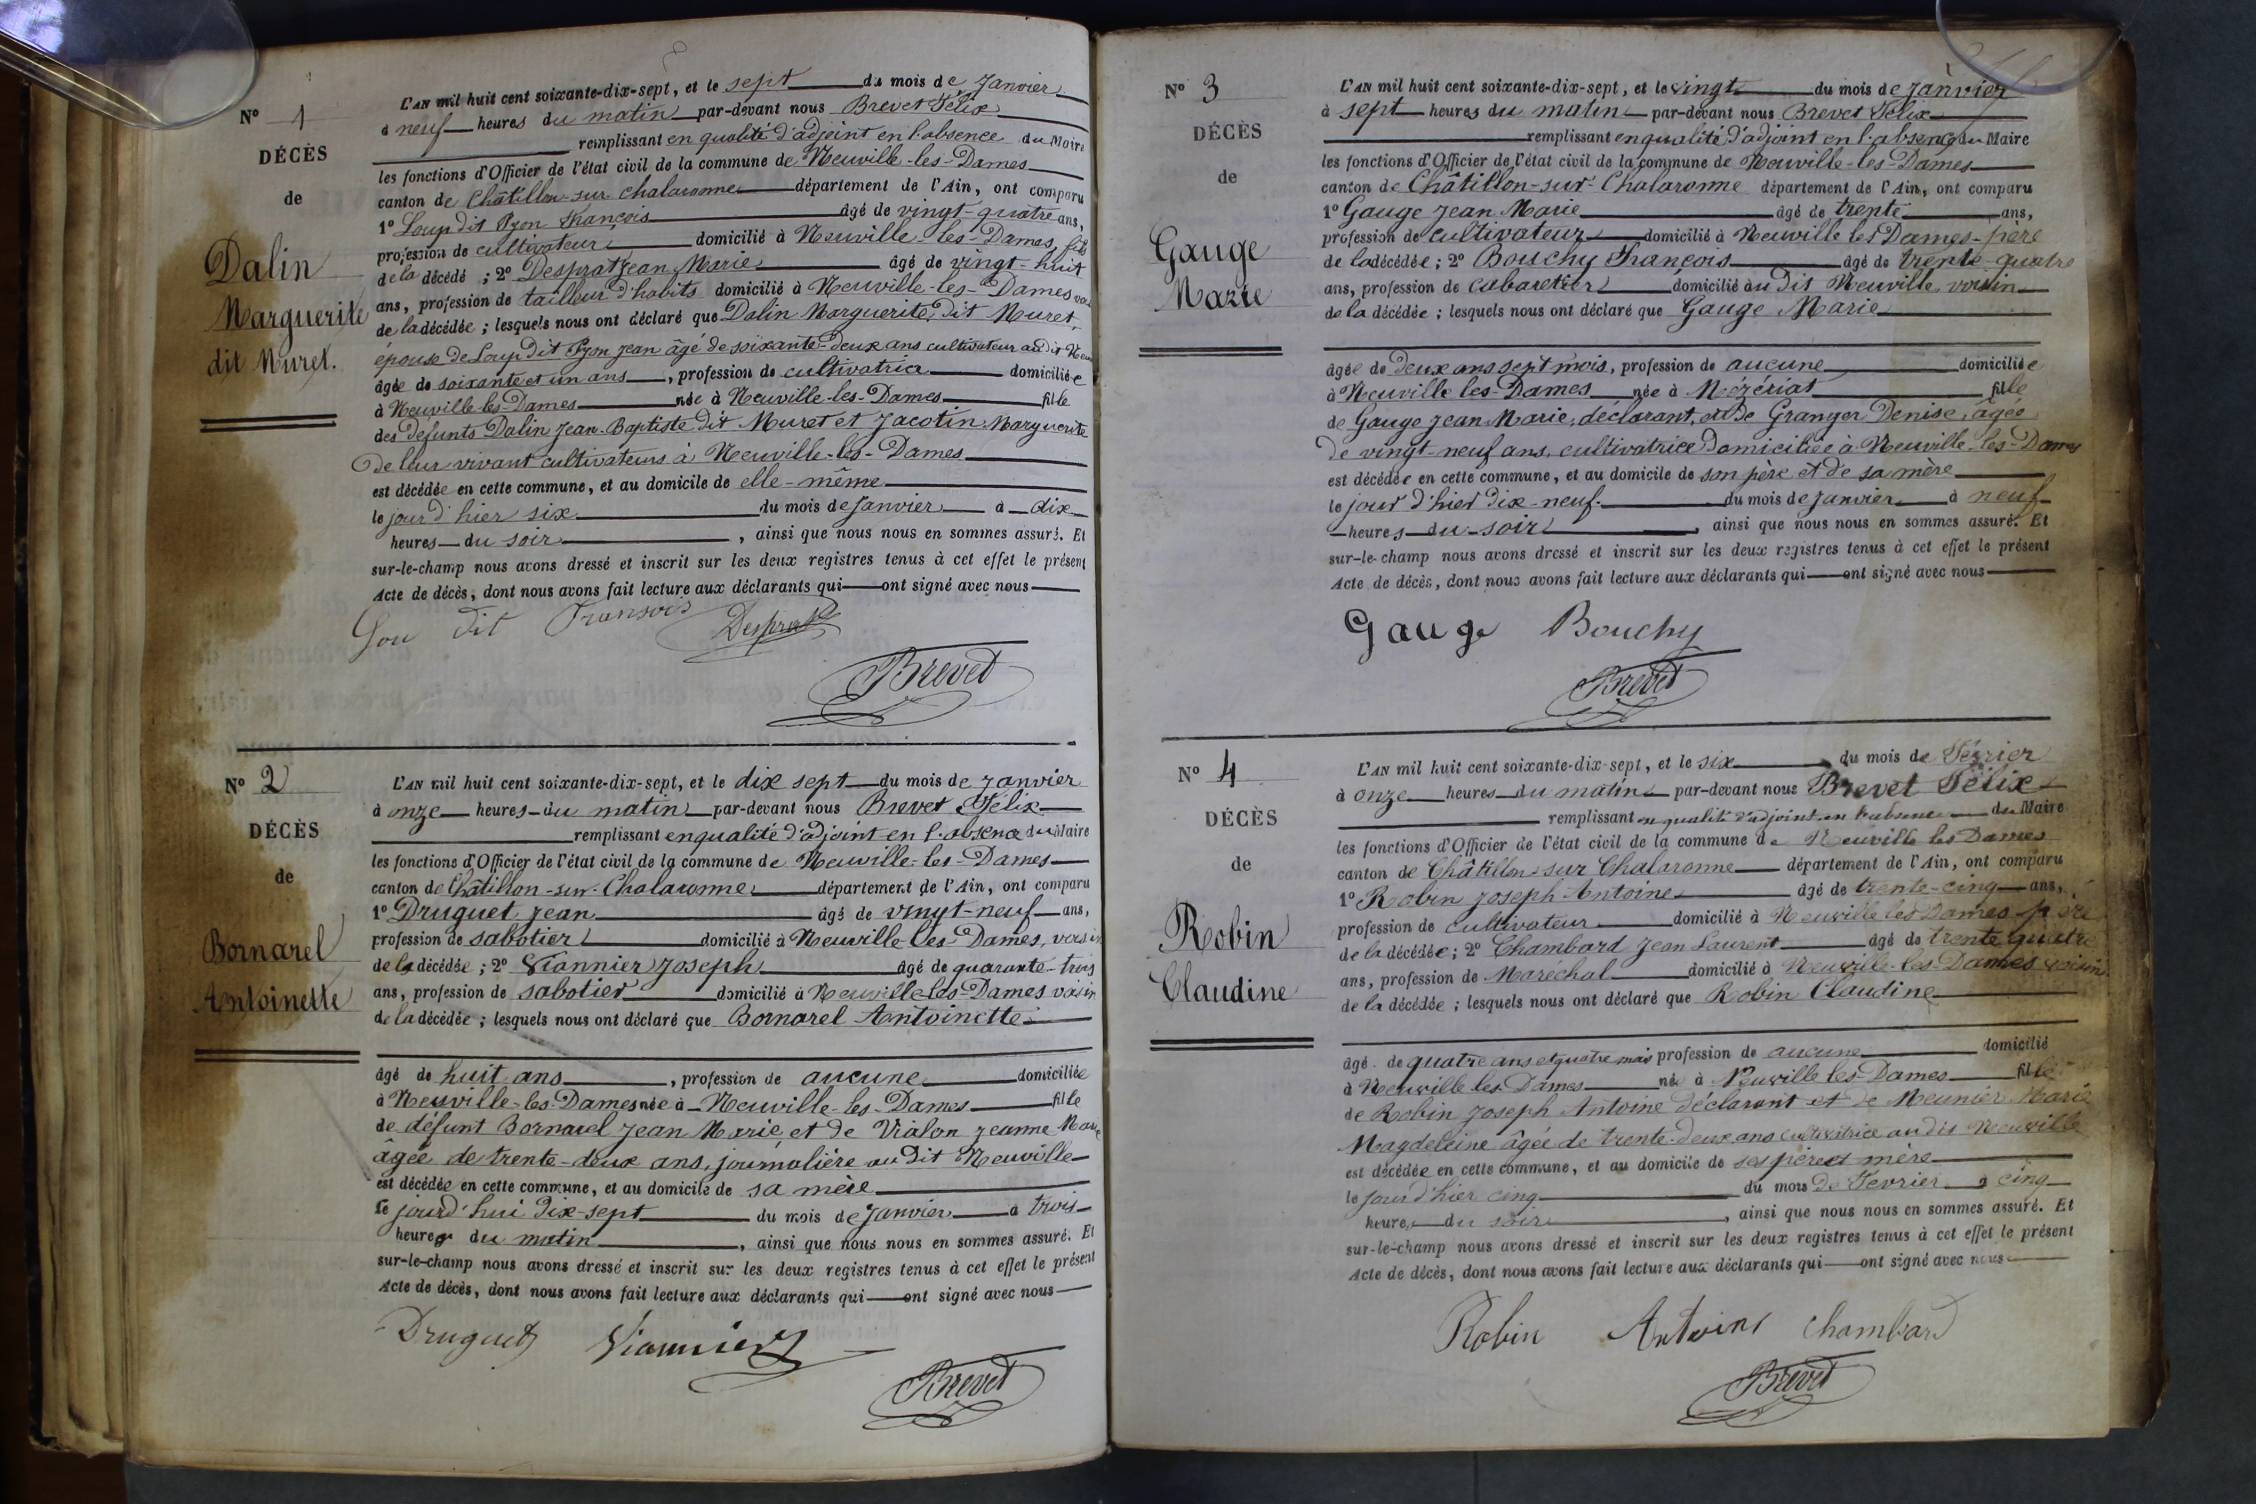 N° 1
DÉCÈS
de
Dalin
Marguerite
dit Muret.
L'AN mil huit cent soixante-dix-sept, et le sept du mois de Janvier
à neuf heures du matin par-devant nous Brevet Félix
remplissant en qualité d'adjoint en l'absence du Maire
les fonctions d'Officier de l'état civil de la commune de Neuville-les-Dames
canton de Châtillon-sur-chalaronne département de l'Ain, ont comparu
1° Loup dit Pyon François âgé de vingt-quatre ans,
profession de cultivateur domicilié à Neuville-les-Dames, fils
de la décédé ; 2° Desprat Jean Marie âgé de vingt-huit
ans, profession de tailleur d'habits domicilié à Neuville-les-Dames
de la décédée ; lesquels nous ont déclaré que Dalin Marguerite, dit Muret,
épouse de Loup dit Pyon Jean âgé de soixante-deux ans cultivateur audit
âgée de soixante et un ans, profession de cultivatrice domiciliée
à Neuville-les-Dames née à Neuville-les-Dames fille
des défunts Dalin Jean-Baptiste dit Muret et Jacotin Marguerite
de leur vivant cultivateurs à Neuville-les-Dames
est décédée en cette commune, et au domicile de elle-même
le jour d'hier six du mois de Janvier à dix
heures du soir, ainsi que nous nous en sommes assuré. Et
sur-le-champ nous avons dressé et inscrit sur les deux registres tenus à cet effet le présent
Acte de décès, dont nous avons fait lecture aux déclarants qui ont signé avec nous
Lou dit Fransois Desprat
Brevet
N° 2
DÉCÈS
de
Bornarel
Antoinette
L'AN mil huit cent soixante-dix-sept, et le dix sept du mois de Janvier
à onze heures du matin par-devant nous Brevet Félix
remplissant en qualité d'adjoint en l'absence du Maire
les fonctions d'Officier de l'état civil de la commune de Neuville-les-Dames
canton de Châtillon-sur-Chalaronne département de l'Ain, ont comparu
1° Druguet Jean âgé de vingt-neuf ans,
profession de sabotier domicilié à Neuville-les-Dames, voisin
de la décédée ; 2° Viannier Joseph âgé de quarante-trois
ans, profession de sabotier domicilié à Neuville-les-Dames voisin
de la décédée ; lesquels nous ont déclaré que Bornarel Antoinette
âgé de huit ans, profession de aucune domiciliée
à Neuville-les-Dames née à Neuville-les-Dames fille
de défunt Bornarel Jean Marie et de Vialon Jeanne Marie
âgée de trente-deux ans, journalière au dit Neuville
est décédée en cette commune, et au domicile de sa mère
le jourd'hui dix-sept du mois de Janvier à trois
heures du matin, ainsi que nous nous en sommes assuré. Et
sur-le-champ nous avons dressé et inscrit sur les deux registres tenus à cet effet le présent
Acte de décès, dont nous avons fait lecture aux déclarants qui ont signé avec nous
Druguet Viannier
Brevet
N° 3
DÉCÈS
de
Gauge
Marie
L'AN mil huit cent soixante-dix-sept, et le vingt du mois de Janvier
à sept heures du matin par-devant nous Brevet Félix
remplissant en qualité d'adjoint en l'absence du Maire
les fonctions d'Officier de l'état civil de la commune de Neuville-les-Dames
canton de Châtillon-sur-Chalaronne département de l'Ain, ont comparu
1° Gauge Jean Marie âgé de trente ans,
profession de cultivateur domicilié à Neuville les Dames-père
de la décédée ; 2° Bouchy François âgé de trente-quatre
ans, profession de cabaretier domicilié au dit Neuville voisin
de la décédée ; lesquels nous ont déclaré que Gauge Marie
âgée de deux ans sept mois, profession de aucune domiciliée
à Neuville les-Dames née à Mézériat fille
de Gauge Jean Marie, déclarant, et de Granger Denise, âgée
de vingt-neuf ans, cultivatrice domiciliée à Neuville-les-Dames
est décédée en cette commune, et au domicile de son père et de sa mère
le jour d'hier dix-neuf du mois de Janvier à neuf
heures du soir, ainsi que nous nous en sommes assuré. Et
sur-le-champ nous avons dressé et inscrit sur les deux registres tenus à cet effet le présent
Acte de décès, dont nous avons fait lecture aux déclarants qui ont signé avec nous
Gauge Bouchy
Brevet
N° 4
DÉCÈS
de
Robin
Claudine
L'AN mil huit cent soixante-dix-sept, et le six du mois de Février
à onze heures du matin par-devant nous Brevet Félix
remplissant en qualité d'adjoint en l'absence du Maire
les fonctions d'Officier de l'état civil de la commune de Neuville les Dames
canton de Châtillon-sur Chalaronne département de l'Ain, ont comparu
1° Robin Joseph Antoine âgé de trente-cinq ans,
profession de cultivateur domicilié à Neuville les Dames père
de la décédée ; 2° Chambard Jean Laurent âgé de trente quatre
ans, profession de Maréchal domicilié à Neuville-les-Dames voisin
de la décédée ; lesquels nous ont déclaré que Robin Claudine
âgé de quatre ans et quatre mois profession de aucune domicilié
à Neuville les Dames née à Neuville les-Dames fille
de Robin Joseph Antoine déclarant et de Meunier Marie
Magdeleine âgée de trente-deux ans cultivatrice au dit Neuville
est décédée en cette commune, et au domicile de ses père et mère
le jour d'hier cinq du mois de Février à cinq
heures du soir, ainsi que nous nous en sommes assuré. Et
sur-le-champ nous avons dressé et inscrit sur les deux registres tenus à cet effet le présent
Acte de décès, dont nous avons fait lecture aux déclarants qui ont signé avec nous
Robin Antoine Chambard
Brevet